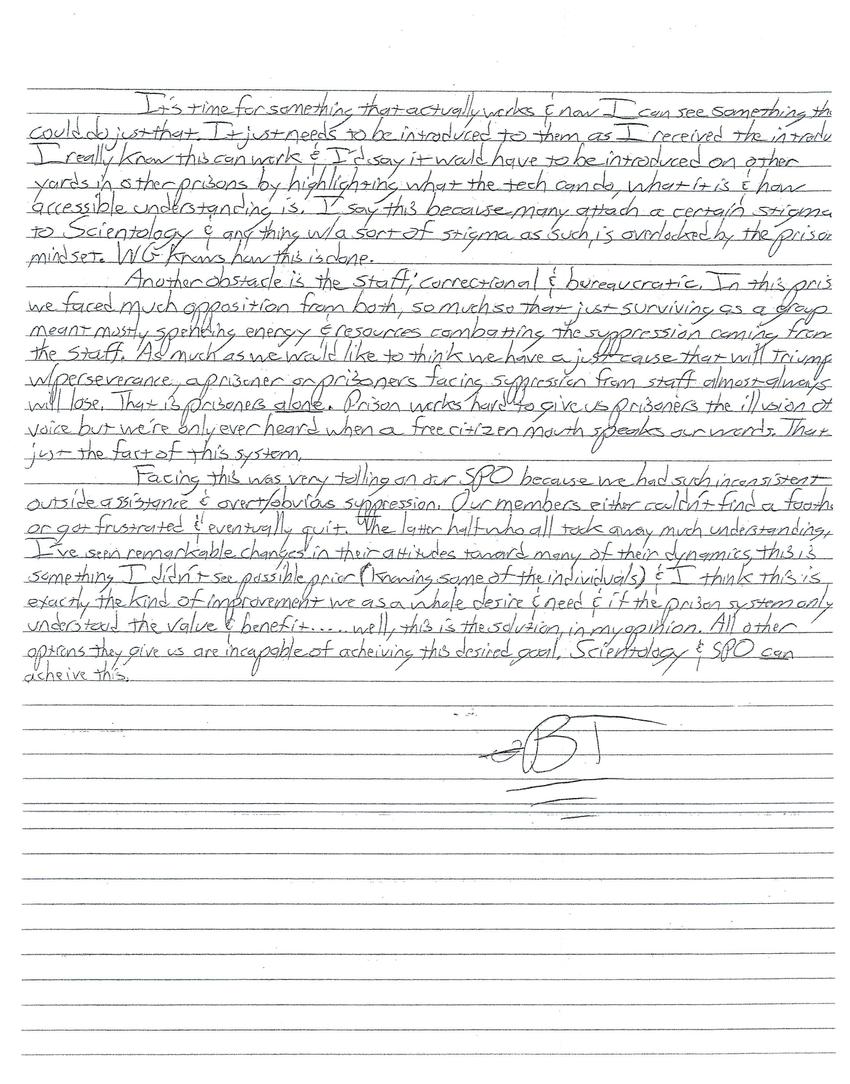 It's time for something that actually works & now I can see something tha
could do just that. It just needs to be introduced to them as I received the introdu
I really know this can work & I'd say it would have to be introduced on other
yards in other prisons by highlighting what the tech can do, what it is & how
accessible understanding is. I say this because many attach a certain stigma
to Scientology & anything w/a sort of stigma as such, is overlooked by the prison
mindset. WG knows how this is done.
Another obstacle is the staff; correctional & bureaucratic. In this pris
we faced much opposition from both, so much so that just surviving as a group
meant mostly spending energy & resources combatting the suppression coming from
the staff. As much as we would like to think we have a just cause that will triump
w/perseverance, a prisoner or prisoners facing suppression from staff almost always
will lose. That is prisoners alone. Prison works hard to give us prisoners the illusion of
voice but we're only ever heard when a free citizen mouth speaks our words. That
just the fact of this system.
Facing this was very tolling on our SPO because we had such inconsistent
outside assistance & overt/obvious suppression. Our members either couldn't find a footh
or got frustrated & eventually quit. The latter half who all took away much understanding,
I've seen remarkable changes in their attitudes toward many of their dynamics this is
something I didn't see possible prior (knowing some of the individuals) & I think this is
exactly the kind of improvement we as a whole desire & need & if the prison system only
understood the value & benefit..... well, this is the solution, in my opinion. All other
options they give us are incapable of acheiving this desired goal. Scientology & SPO can
acheive this.
BT